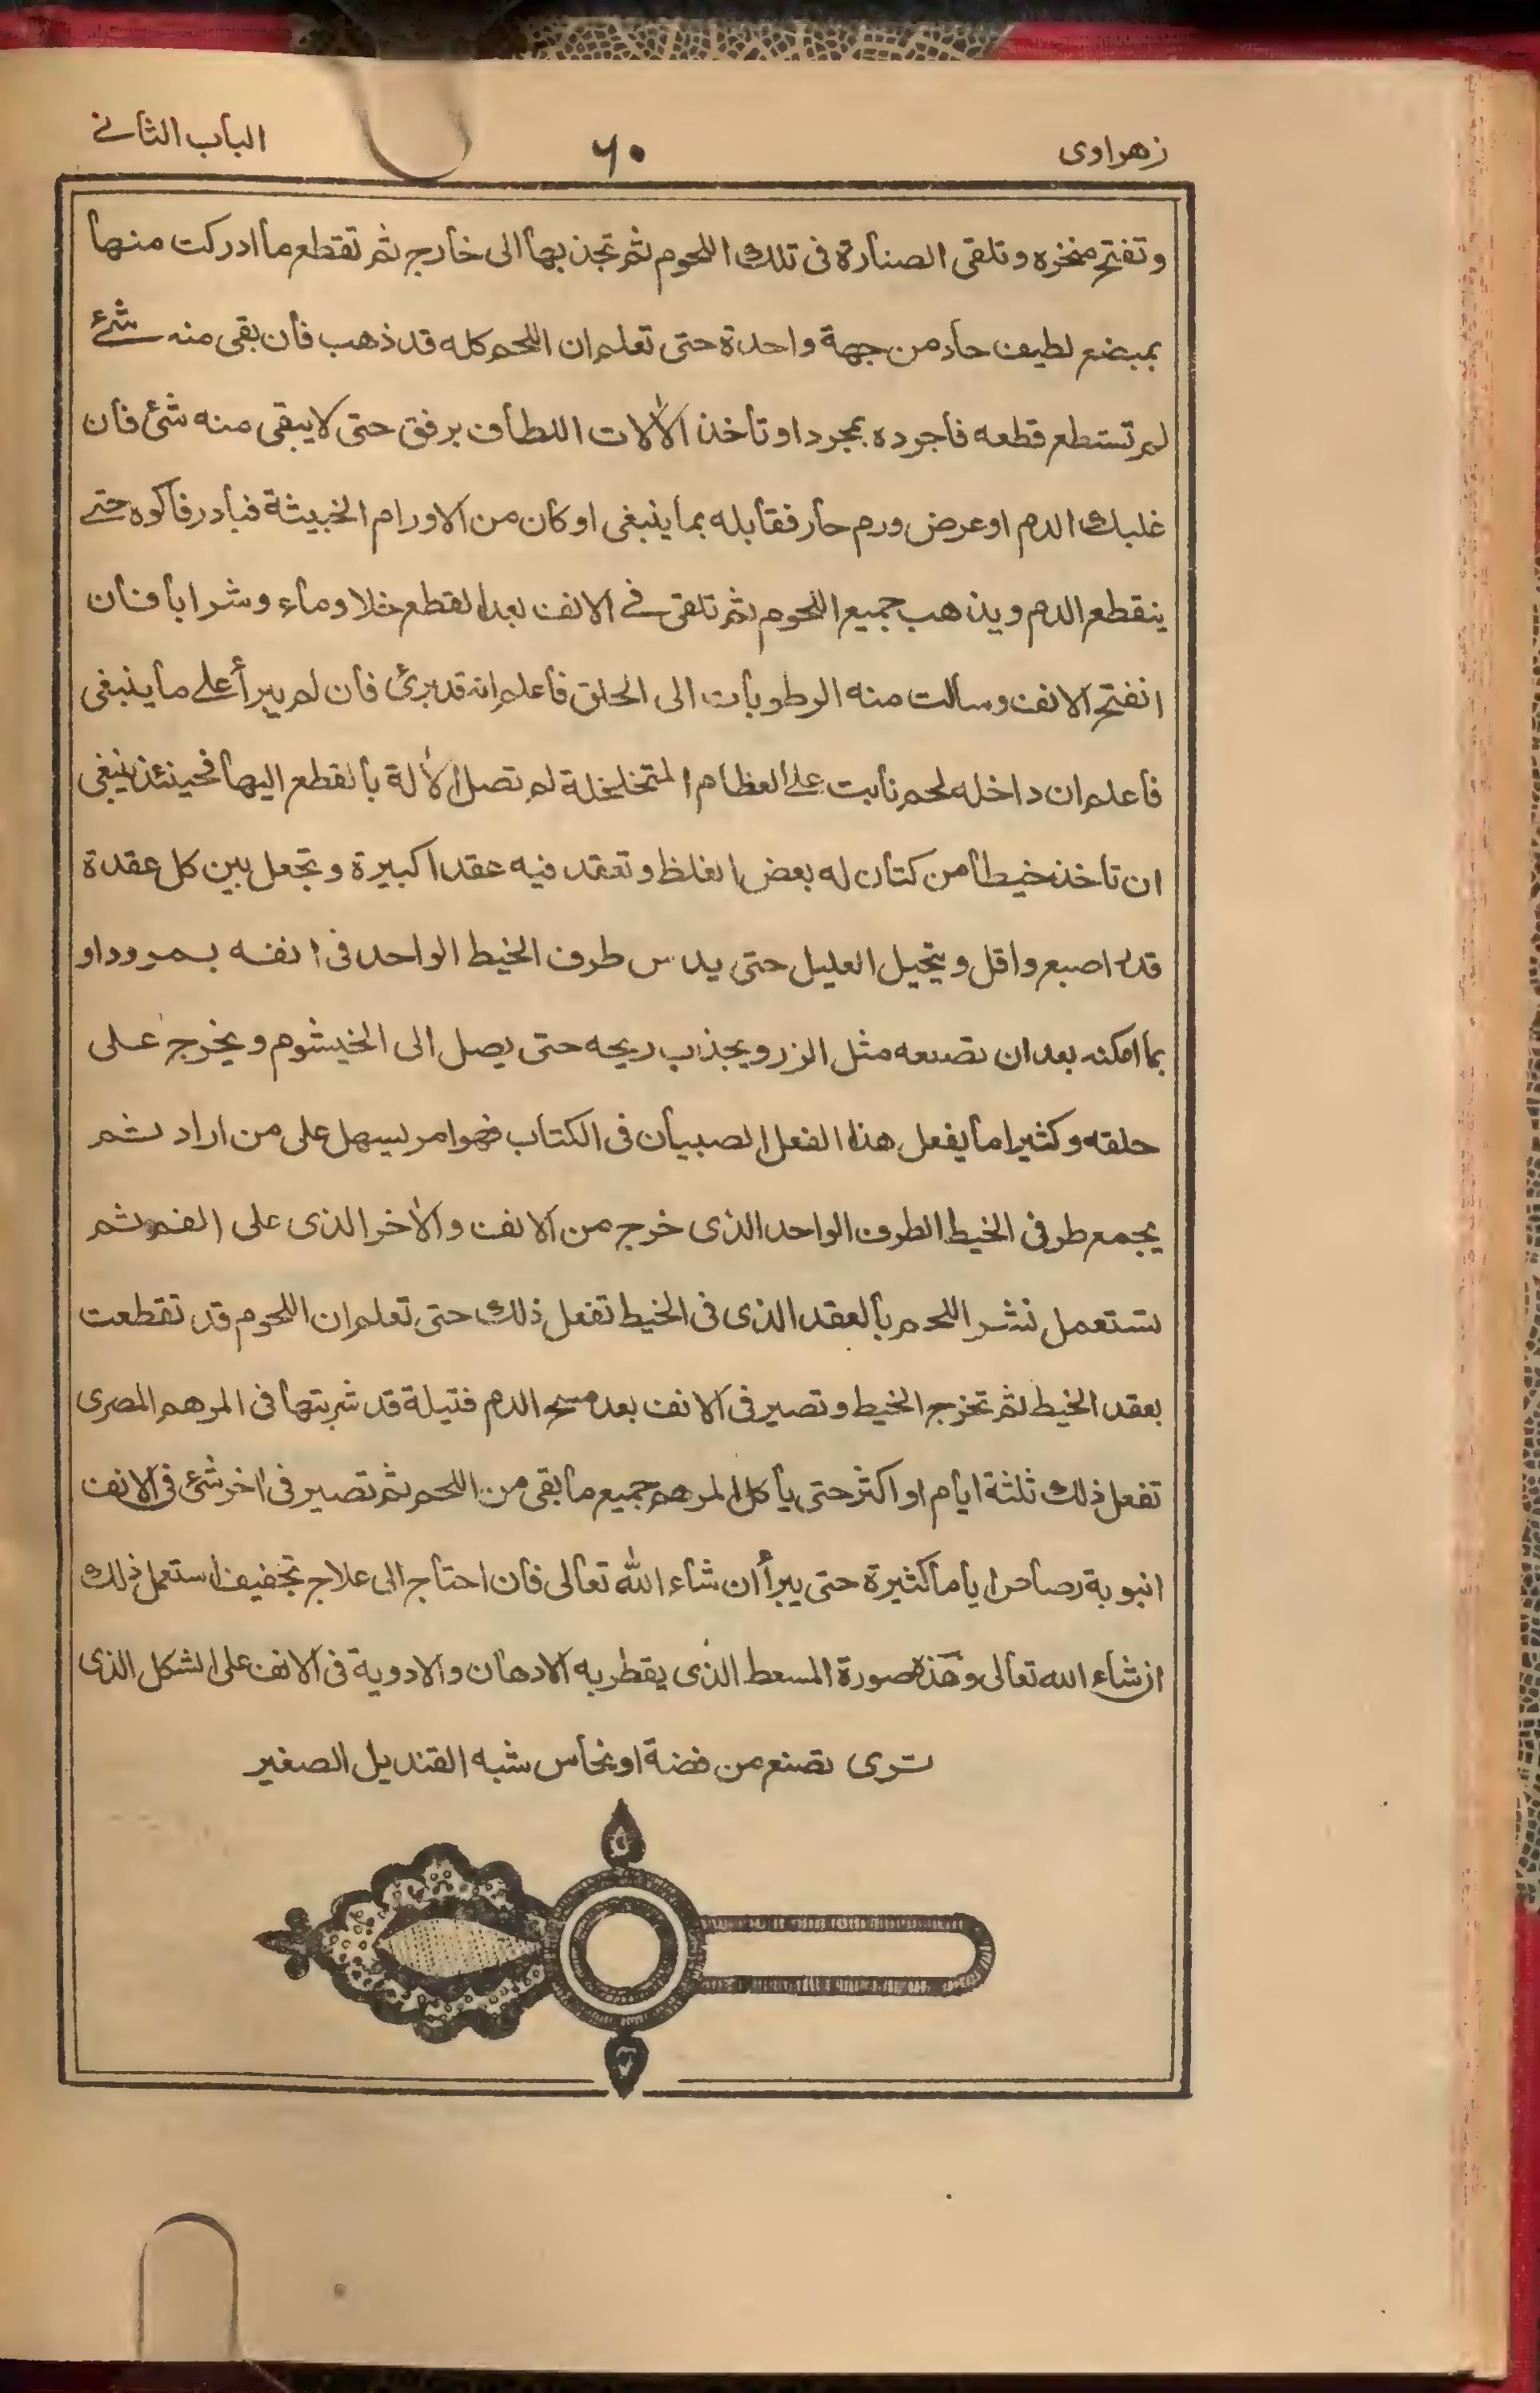 زهراوی ٦٠ الباب الثانے
وتفتح منخره وتلقى الصنارة فى تلك اللحوم ثم تجذ بها الى خارج ثم تقطع ما ادركت منها
بمبضع لطيف حاد من جهة واحدة حتى تعلم ان اللحم كله قد ذهب فان بقى منه شئے
لم تستطع قطعه فاجرده بمجرد او تاخذ الآلات اللطاف برفق حتى لا يبقى منه شئ فان
غلبك الدم او عرض ورم حار فقابله بما ينبغى او كان من الاورام الخبيثة فبادر فاكوه حتے
ينقطع الدم ويذهب جميع اللحوم ثم تلقى فے الانف بعد القطع خلا وماء وشرابا فان
انفتح الانف وسالت منه الرطوبات الى الحلق فاعلم انه قد برئ فان لم يبرأ علے ما ينبغى
فاعلم ان داخله لحم نابت علے العظام المتخلخلة لم تصل الآلة بالقطع اليها فحينئذ ينبغى
ان تاخذ خيطا من كتان له بعض الغلظ وتعقد فيه عقدا كبيرة وتجعل بين كل عقدة
قدر اصبع واقل ويتحيل العليل حتى يدس طرف الخيط الواحد فى انفه بمرود او
بما امكنه بعد ان تصنعه مثل الزر ويجذب ريحه حتى يصل الى الخيشوم ويخرج على
حلقه وكثيرا ما يفعل هذا الفعل الصبيان فى الكتاب فهو امر يسهل على من اراد ثم
يجمع طرفى الخيط الطرف الواحد الذى خرج من الانف والآخر الذى على الفم ثم
تستعمل نشر اللحم بالعقد الذى فى الخيط تفعل ذلك حتى تعلم ان اللحوم قد تقطعت
بعقد الخيط ثم تخرج الخيط وتصير فى الانف بعد مسح الدم فتيلة قد شربتها فى المرهم المصرى
تفعل ذلك ثلثة ايام او اكثر حتى ياكل المرهم جميع ما بقى من اللحم ثم تصير فى اخر شئ فى الانف
انبوبة رصاص اياما كثيرة حتى يبرأ ان شاء الله تعالى فان احتاج الى علاج تجفيف استعمل ذلك
ان شاء الله تعالى وهذه صورة المسعط الذى يقطر به الادهان والادوية فى الانف على الشكل الذى
ترى تصنع من فضة او نحاس شبه القنديل الصغير